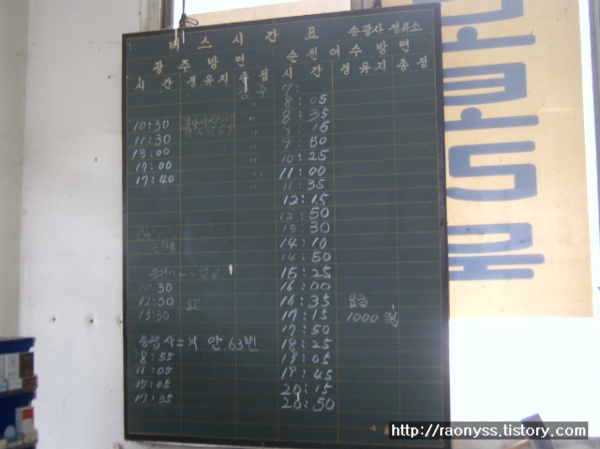 버스시간표 송광사 정류소
광주방면 순천 여수 방면
시간 경유지 종점 시간 경유지 종점
7:
8:05
10:30 8:35
11:30 15
13:00 9:50
17:00 10:25
17:40 11:00
11:35
12:15
12:50
13:30
14:10
14:50
15:25
10:30 16:00
12:30 16:35 요금
13:30 17:15 1000원
17:50
송광사=낙안 63번 18:25
8:55 19:05
11:05 19:45
15:05 20:15
17:35 20:50
http://raonyss.tistory.com